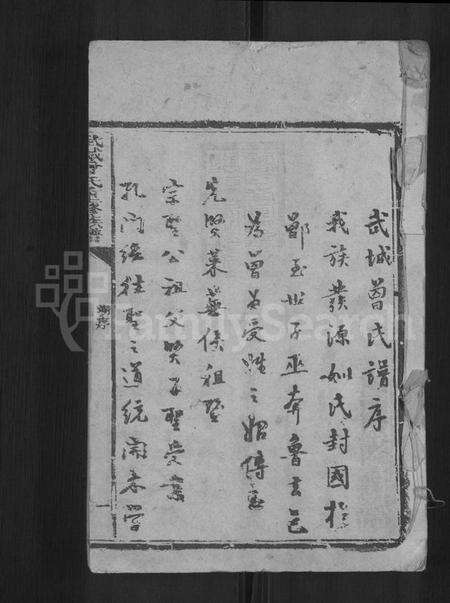 武城曾氏譜序
我族發源姒氏封國於
鄫至世子巫奔魯去邑
為曾為受姓之始傳至
先賢萊蕪侯祖暨
宗聖公祖父賢子聖受業
孔門繼往聖之道統開來學
序
一
FamilySearch